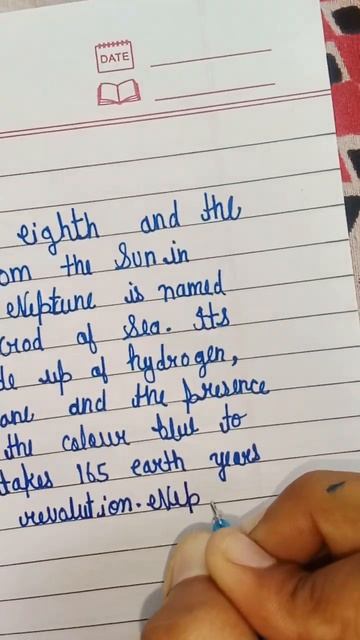 DATE
eighth and the
om the Sun in
Neptune is named
God of Sea. Its
de up of hydrogen,
ane and the presence
the colour blue to
takes 165 earth years
revolution. Nep